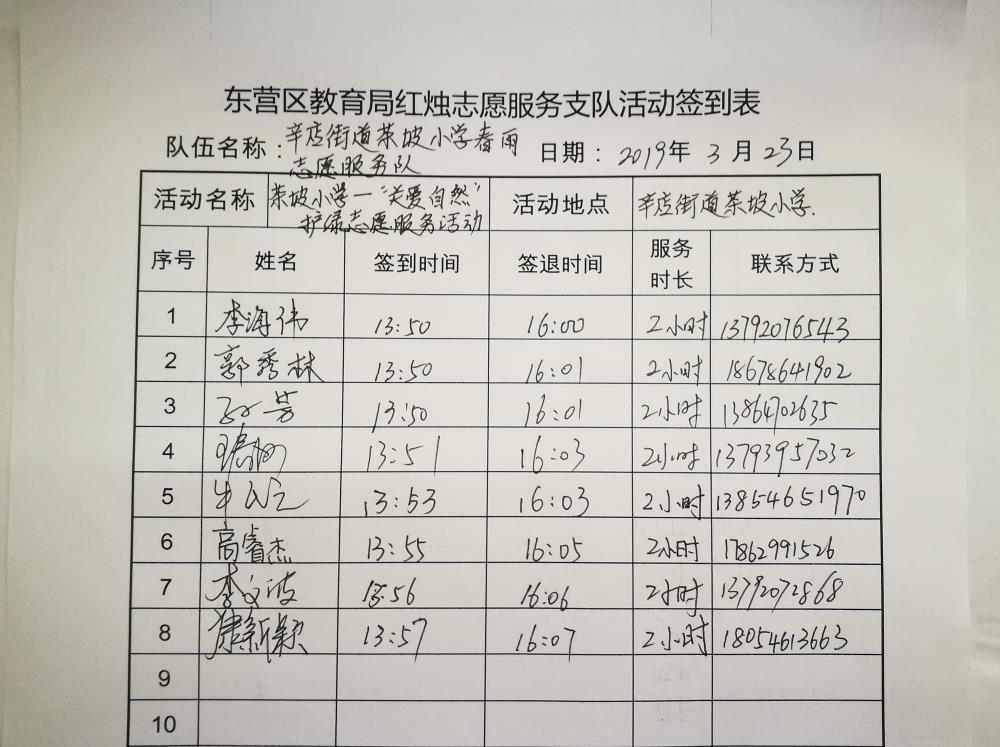 东营区教育局红烛志愿服务支队活动签到表
队伍名称：辛店街道茶坡小学春雨 日期：2019年3月23日
志愿服务队
活动名称 茶坡小学—“关爱自然” 活动地点 辛店街道茶坡小学.
护绿志愿服务活动
序号 姓名 签到时间 签退时间 服务时长 联系方式
1 李海伟 13:50 16:00 2小时 13792076543
2 郭秀林 13:50 16:01 2小时 18678641902
3 芳 13:50 16:01 2小时 13864702635
4 13:51 16:03 2小时 13793957032
5 13:53 16:03 2小时 13854651970
6 高睿杰 13:55 16:05 2小时 17862991526
7 李文波 13:56 16:06 2小时 13792072868
8 新颖 13:57 16:07 2小时 18054613663
9
10